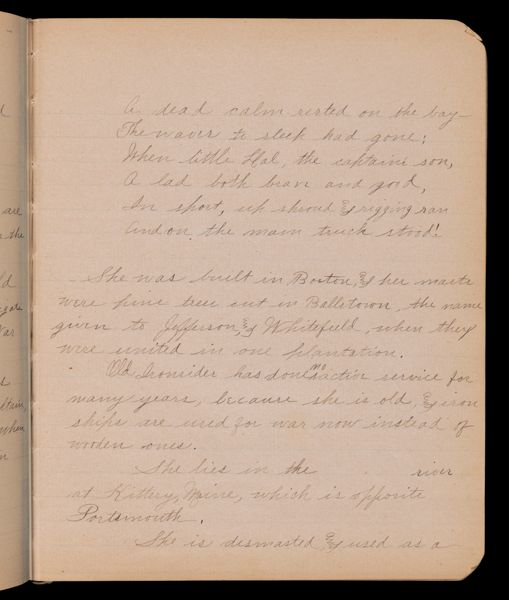 A dead calm rested on the bay
The waves to sleek had gone;
When little Hal, the captains son,
A lad both brave and good,
In sport, up shroud & rigging ran
And on the main truck stood!
She was built in Boston, & her masts
were pine trees cut in Ballstown, the name
given to Jefferson, & Whitefield, when they
were united in one plantation.
Old Ironsides has done no active service for
many years, because she is old, & iron
ships are used for war now instead of
wooden ones.
She lies in the river
at Kittery, Maine, which is opposite
Portsmouth.
She is dismasted & used as a
are
the
when